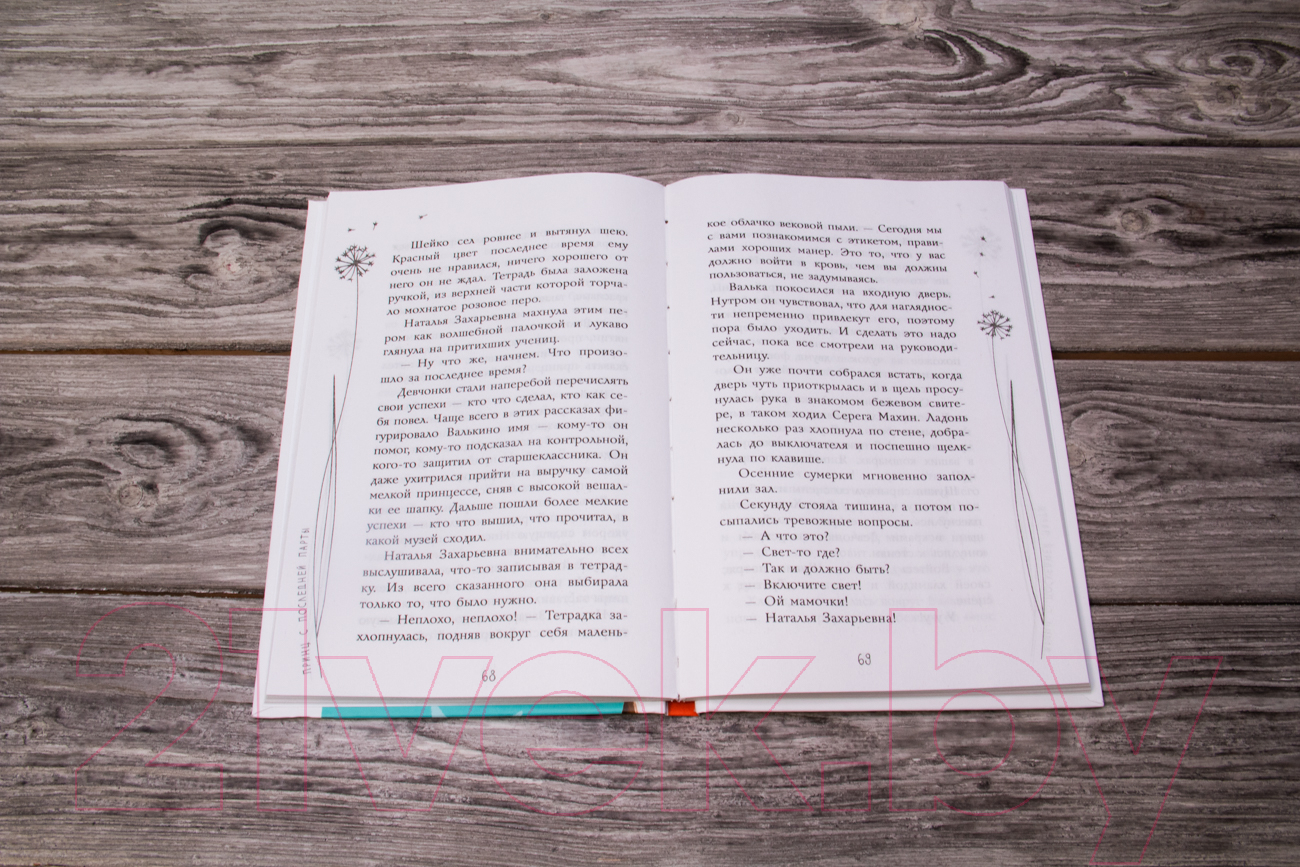 Шейко сел ровнее и вытянул шею.
Красный цвет последнее время ему
очень не нравился, ничего хорошего от
него он не ждал. Тетрадь была заложена
ручкой, из верхней части которой торча-
ло мохнатое розовое перо.
Наталья Захарьевна махнула этим пе-
ром как волшебной палочкой и лукаво
глянула на притихших учениц.
— Ну что же, начнем. Что произо-
шло за последнее время?
Девчонки стали наперебой перечислять
свои успехи — кто что сделал, кто как се-
бя повел. Чаще всего в этих рассказах фи-
гурировало Валькино имя — кому-то он
помог, кому-то подсказал на контрольной,
кого-то защитил от старшеклассника. Он
даже ухитрился прийти на выручку самой
мелкой принцессе, сняв с высокой вешал-
ки ее шапку. Дальше пошли более мелкие
успехи — кто что вышил, что прочитал, в
какой музей сходил.
Наталья Захарьевна внимательно всех
выслушивала, что-то записывая в тетрад-
ку. Из всего сказанного она выбирала
только то, что было нужно.
— Неплохо, неплохо! — Тетрадка за-
хлопнулась, подняв вокруг себя малень-
68
ПРИНЦ С ПОСЛЕДНЕЙ ПАРТЫ
кое облачко вековой пыли. — Сегодня мы
с вами познакомимся с этикетом, прави-
лами хороших манер. Это то, что у вас
должно войти в кровь, чем вы должны
пользоваться, не задумываясь.
Валька покосился на входную дверь.
Нутром он чувствовал, что для нагляднос-
ти непременно привлекут его, поэтому
пора было уходить. И сделать это надо
сейчас, пока все смотрели на руководи-
тельницу.
Он уже почти собрался встать, когда
дверь чуть приоткрылась и в щель просу-
нулась рука в знакомом бежевом свите-
ре, в таком ходил Серега Махин. Ладонь
несколько раз хлопнула по стене, добра-
лась до выключателя и поспешно щелк-
нула по клавише.
Осенние сумерки мгновенно запол-
нили зал.
Секунду стояла тишина, а потом по-
сыпались тревожные вопросы.
— А что это?
— Свет-то где?
— Так и должно быть?
— Включите свет!
— Ой мамочки!
— Наталья Захарьевна!
69
21vek.by